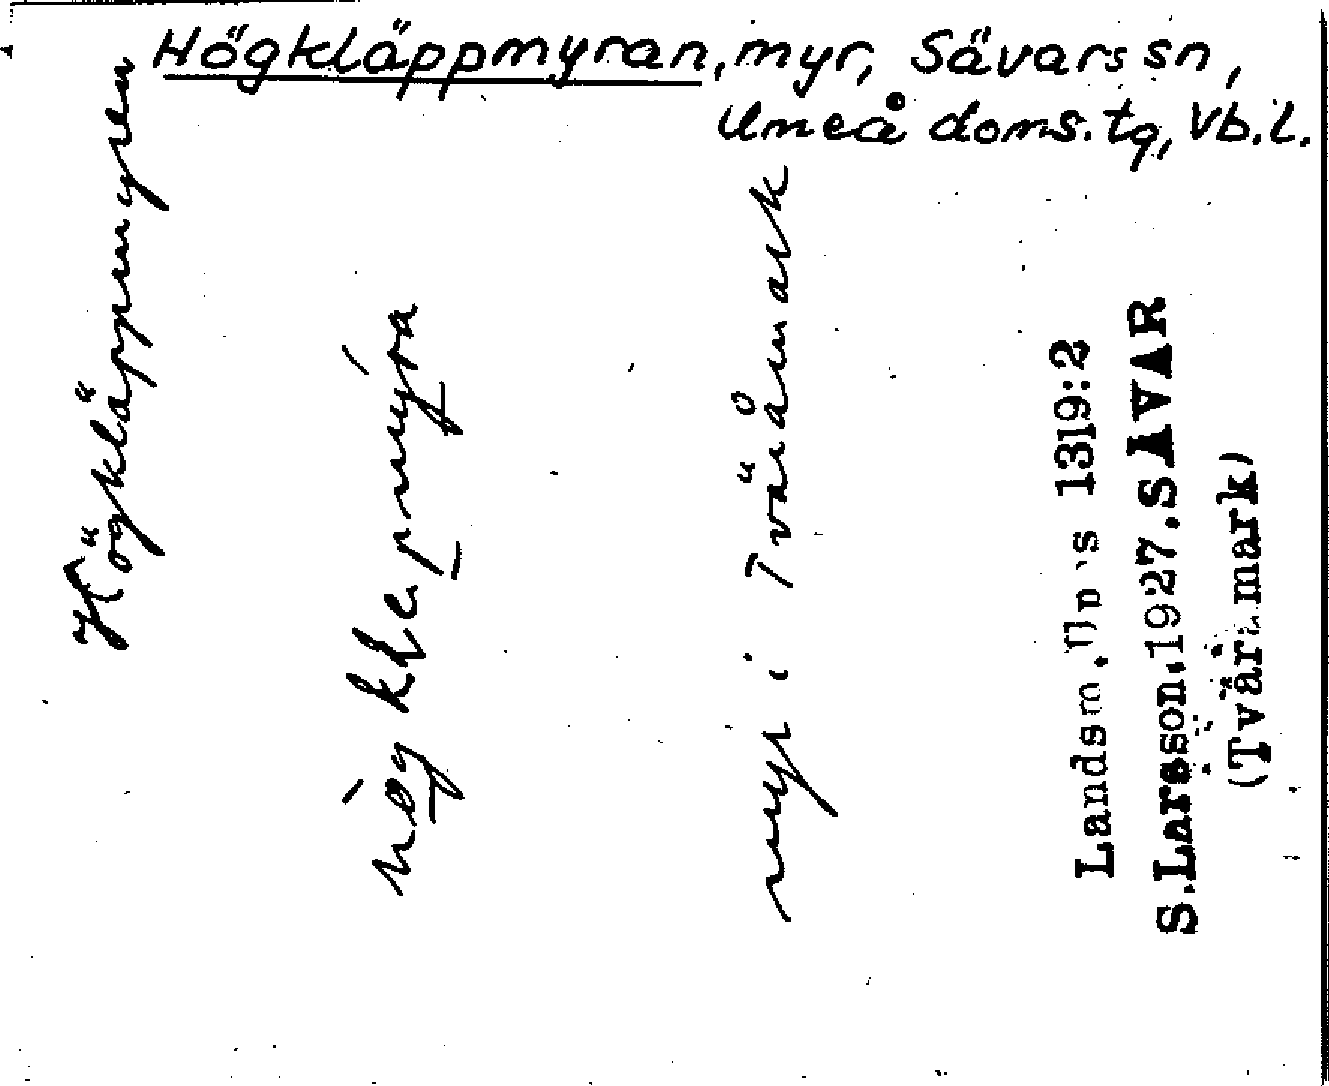 Högkläppmyran, myr, Sävars sn,
Umeå doms.tg, Vb.l.
Högkläppmyren
myr i Tväråmark
Landsm.Upps 1319:2
S.Larsson.1927.SÄVAR
(Tväråmark)